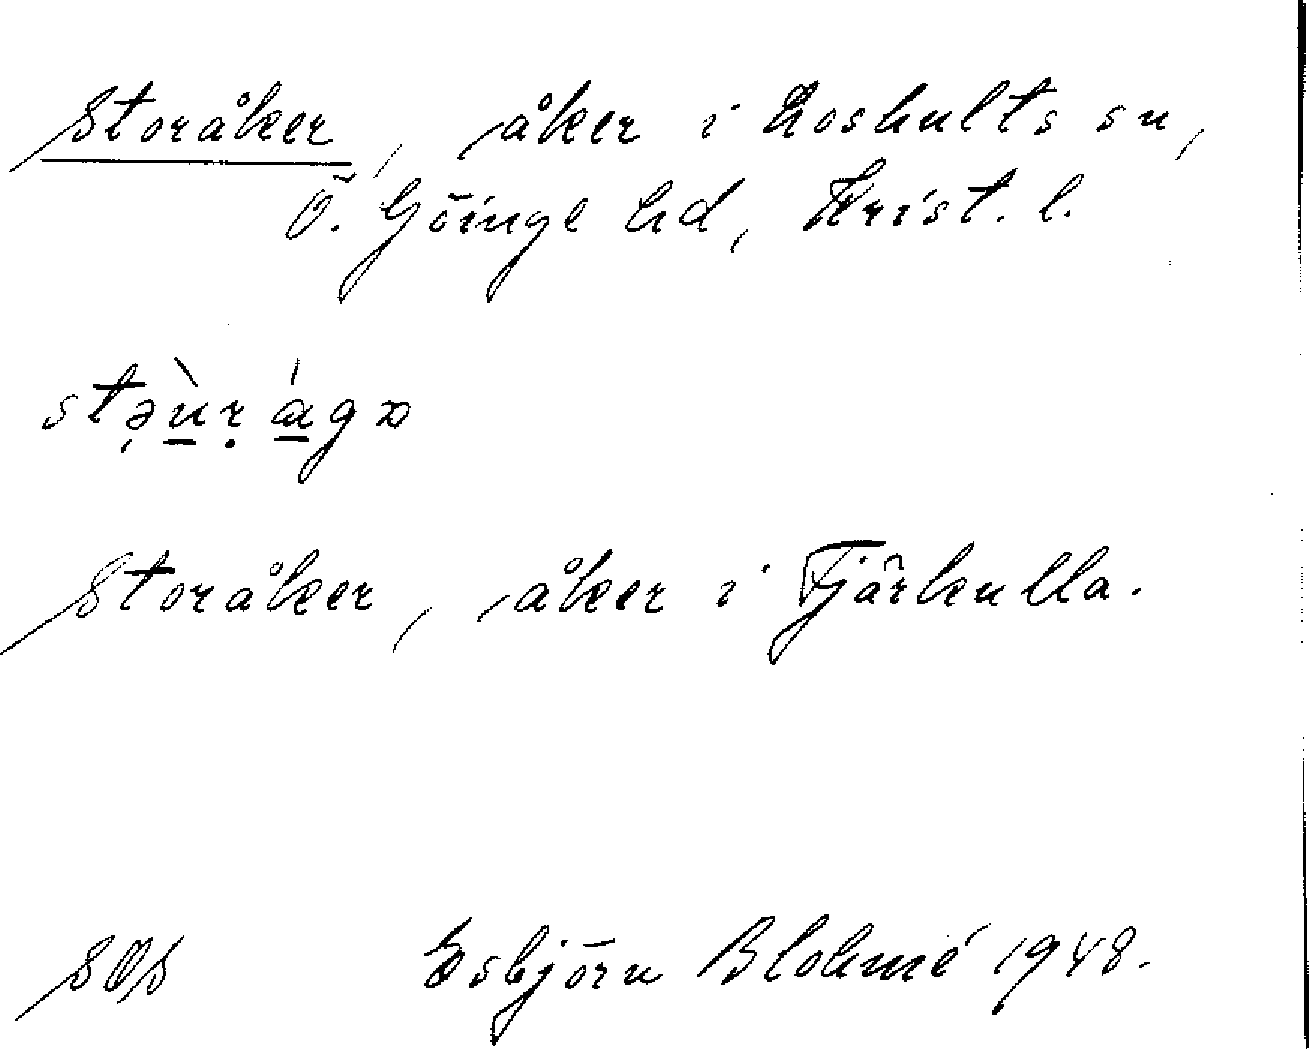 Storåker, åker i Loshults sn,
Ö. Göinge hd, Krist. l.
Storåker, åker i Tjärkulla.
SOS Esbjörn Blohmé 1948.